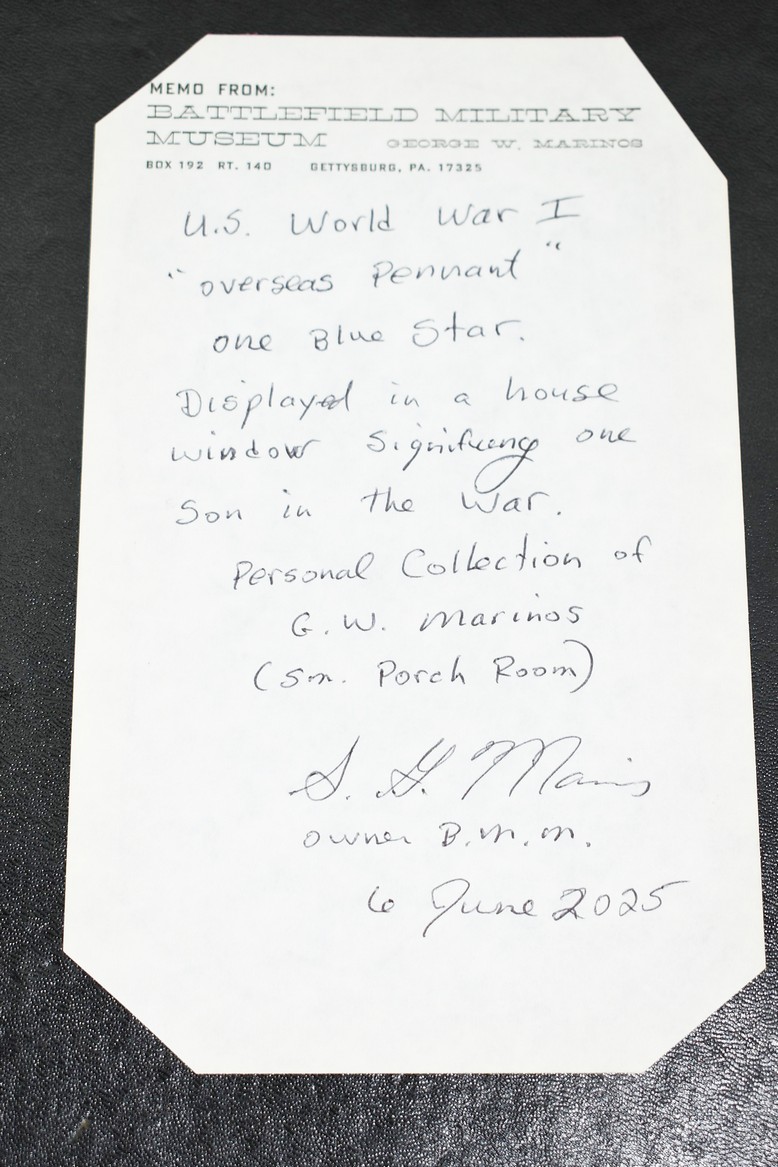 MEMO FROM:
BATTLEFIELD MILITARY
MUSEUM GEORGE W. MARINOS
BOX 192 RT. 140 GETTYSBURG, PA. 17325
U.S. World War I
"overseas Pennant"
one Blue Star.
Displayed in a house
window signifying one
Son in the War.
Personal Collection of
G.W. Marinos
(Sm. Porch Room)
S. G. Marinos
owner B.M.M.
6 June 2025